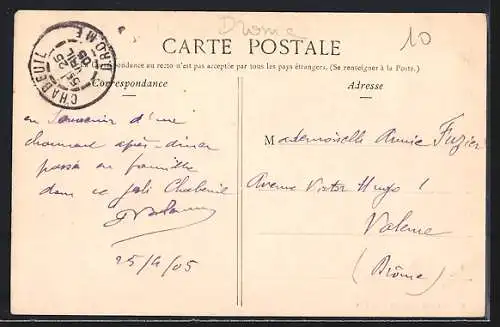 Drome
10
CARTE POSTALE
La Correspondance au recto n'est pas acceptée par tous les pays étrangers. (Se renseigner à la Poste.)
CHABEUIL DROME
25 AVRIL 05
Correspondance
en souvenir d'une
charmant après-diner
passé en famille
dans ce joli Chabeuil
25/4/05
Adresse
Mademoiselle Annie Fuzier
Avenue Victor Hugo 1
Valence
(Drôme)